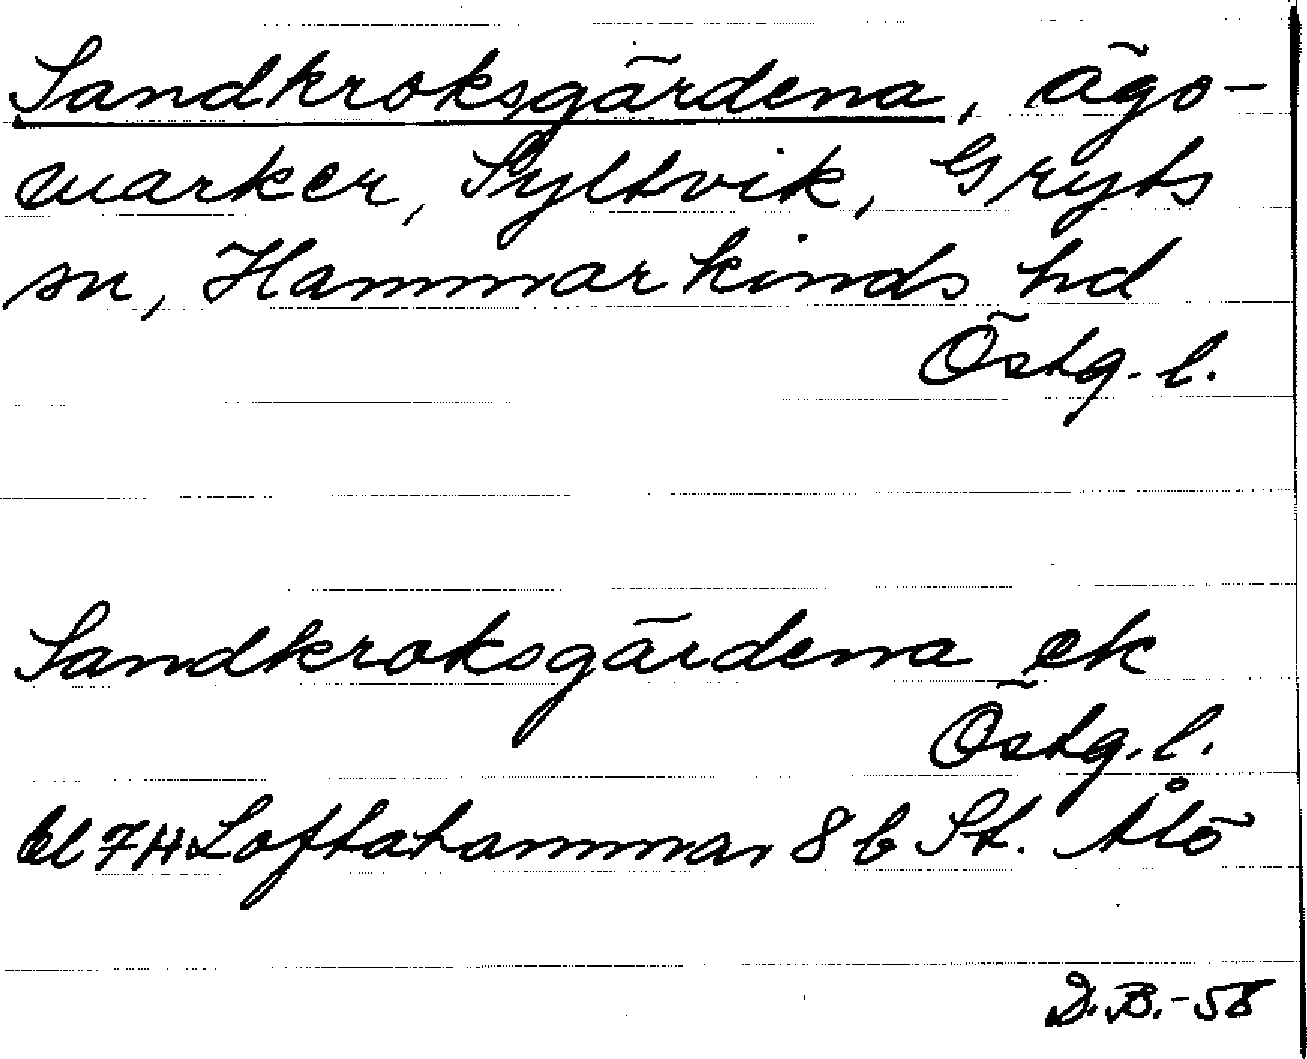 Sandkroksgärdena, ägo-
marker, Syltvik, Gryts
sn, Hammarkinds hd
Östg. l.
Sandkroksgärdena ek
Östg. l.
bl 7H Loftahammar 8 b St. Ålö
D.B. -58